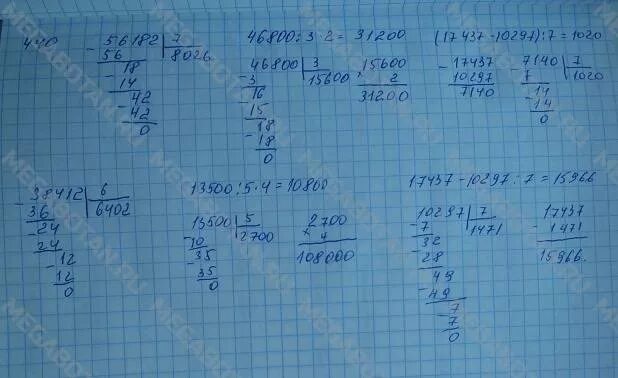 440
56182 | 7
56 | 8026
18
14
42
42
0
46800 : 3 · 2 = 31200
46800 | 3
3 | 15600
16
15
18
18
0
15600
2
31200
(17437 - 10297) : 7 = 1020
17437
10297
7140
7140 | 7
7 | 1020
14
14
0
38412 | 6
36 | 6402
24
24
12
12
0
13500 : 5 · 4 = 10800
13500 | 5
10 | 2700
35
35
0
2700
× 4
108000
17437 - 10297 : 7 = 15966
10297 | 7
7 | 1471
32
28
49
49
7
7
0
17437
- 1471
15966.
MEGABOTAN.RU